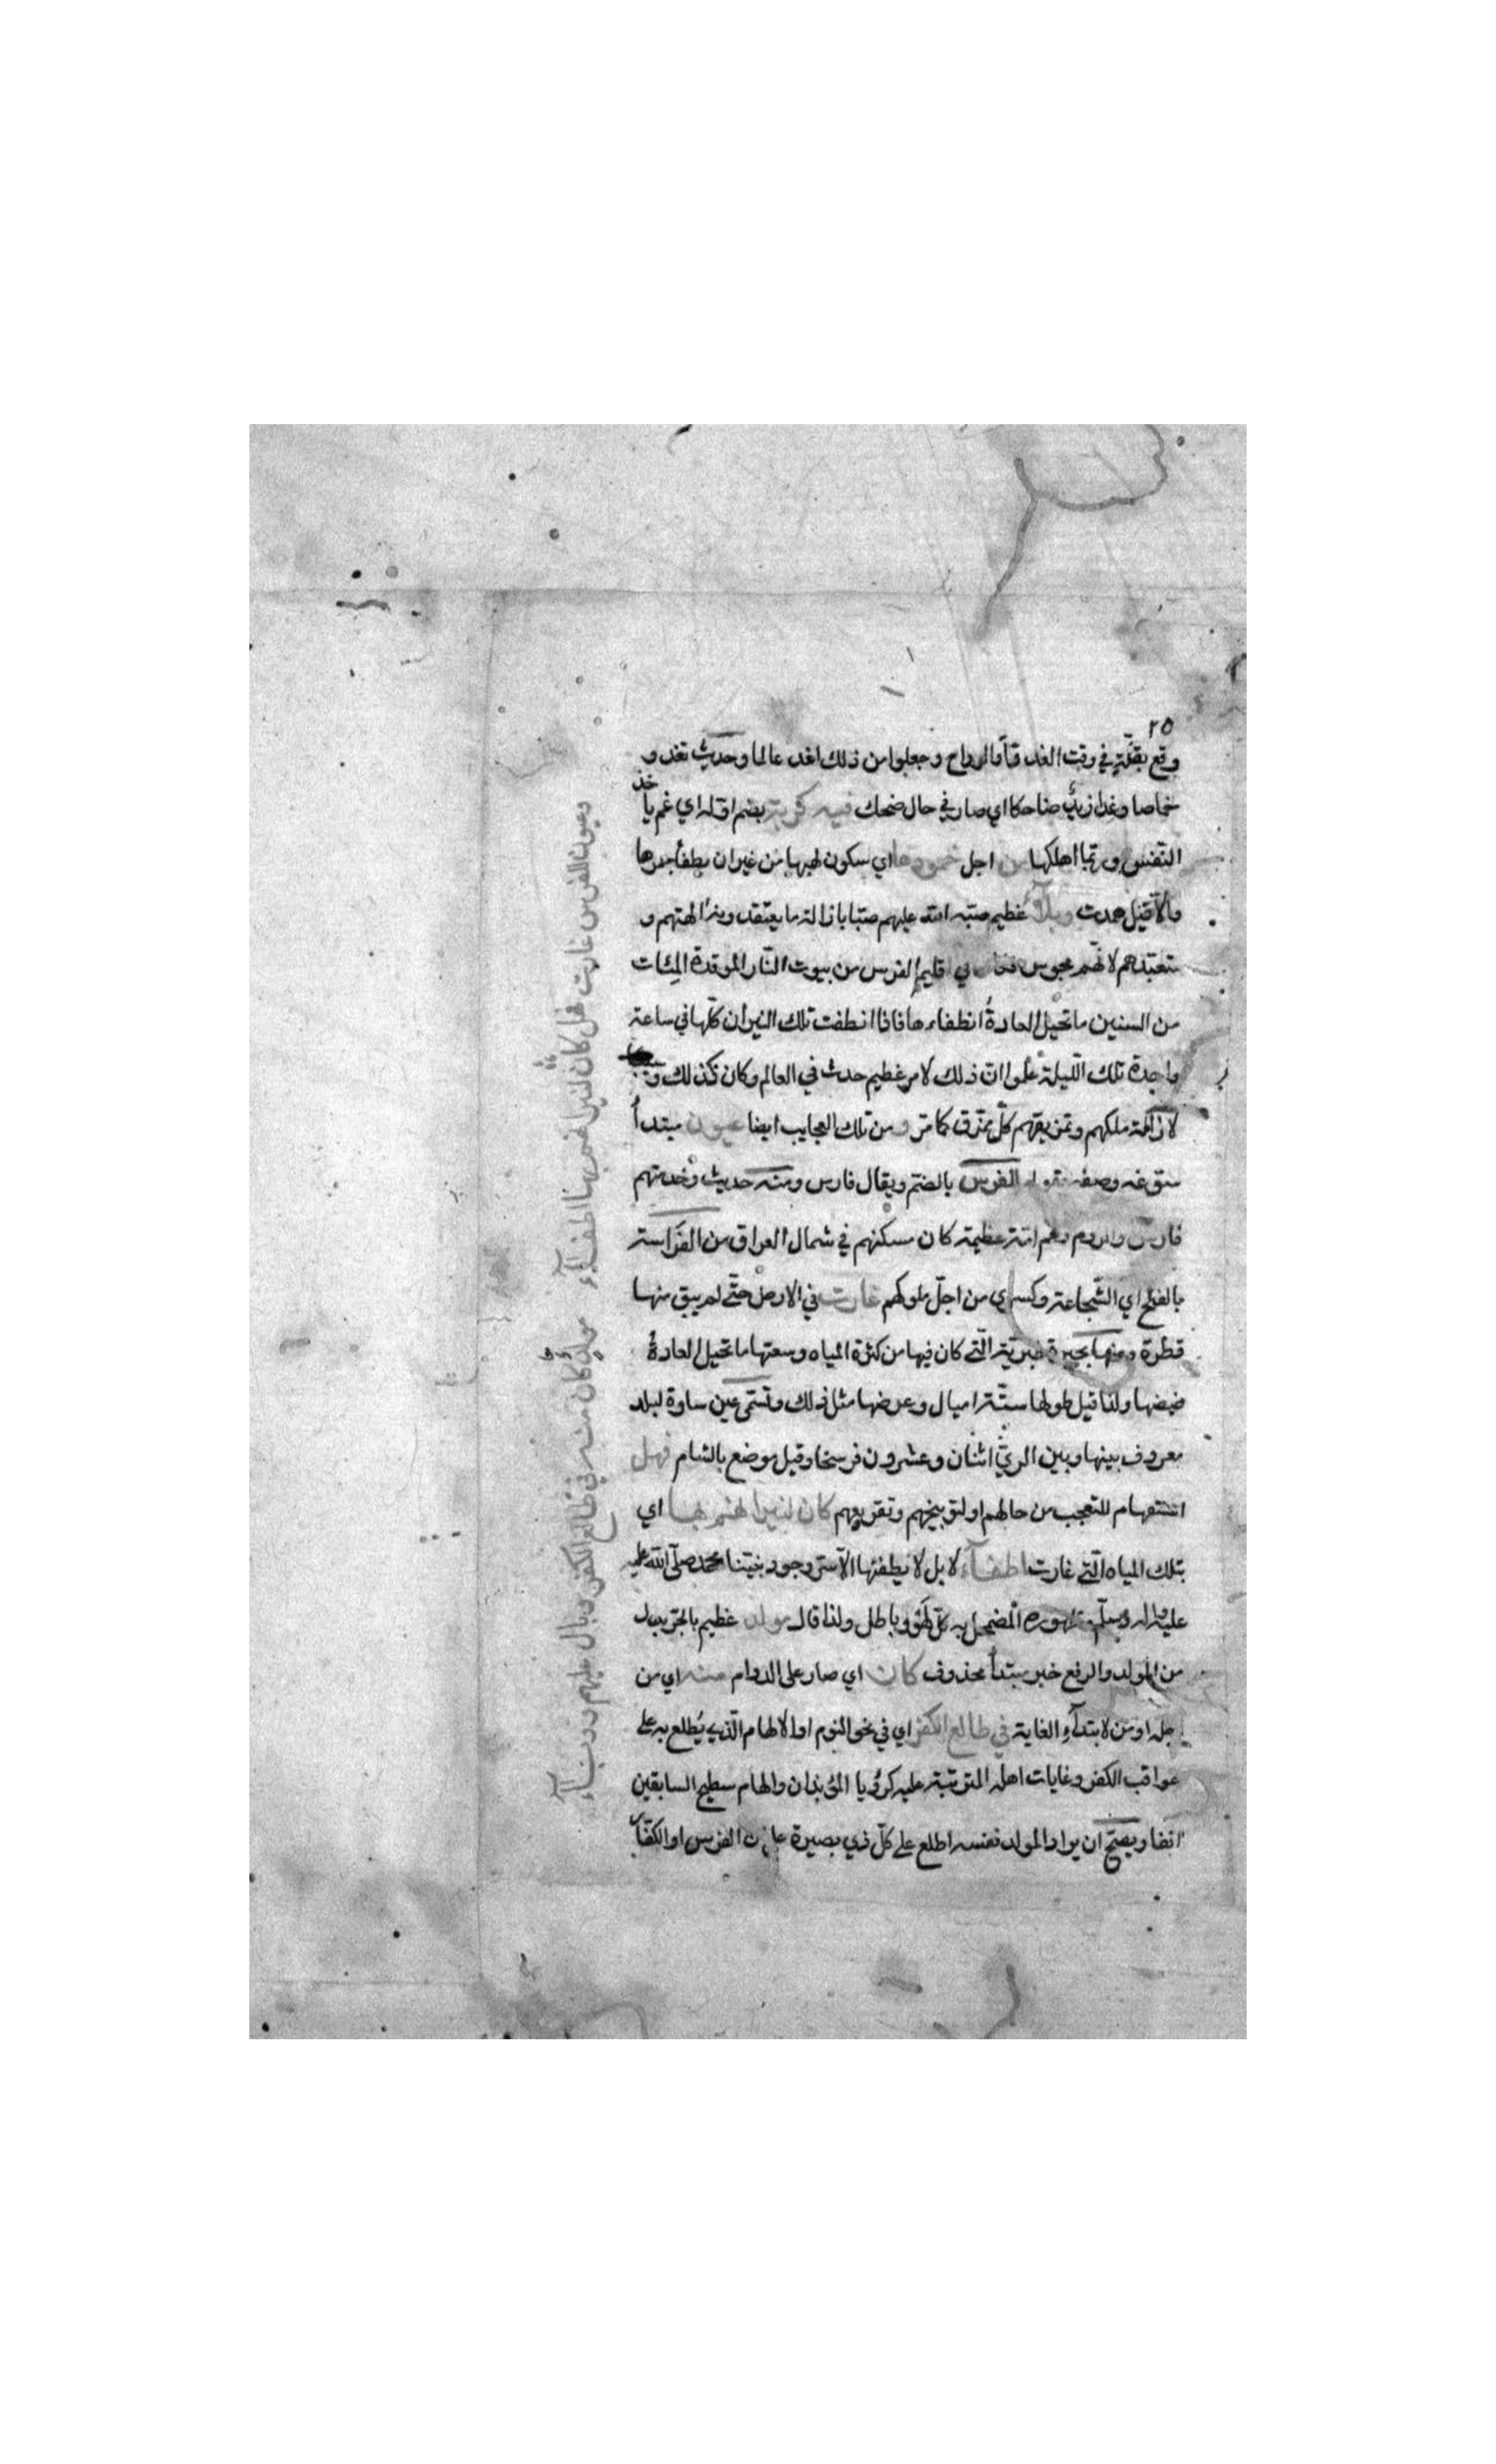 ٢٥
وقع بقلّة في وقت الغد او الرواح وجعلوا من ذلك اغد عالما وحديث تغدو
خماصا وغدا زيد ضاحكا اي صار في حال ضحك فيه كربة بضم اوله اي غم ياخذ
النفس وربما اهلكها من اجل خمودها اي سكون لهبها من غير ان يطفأ جمرها
والا قيل همدت وبلآء عظيم صبّه الله عليهم صبّا بازالة ما يعتقدونه الهتهم و
متعبدهم لانهم مجوس فكان في اقليم الفرس من بيوت النّار الموقدة المئات
من السنين ما تحيل العادةُ انطفاءها فاذا انطفت تلك النيران كلّها في ساعة
واحدة تلك الليلة علموا انّ ذلك لامر عظيم حدث في العالم وكان كذلك
لازالة ملكهم وتمزيقهم كلّ ممزّق كما مرّ ومن تلك العجايب ايضا عيون مبتدأ
سوّغه وصفه بقوله الفرس بالضم ويقال فارس ومنه حديث وخدمتهم
فارس والروم وهم امّة عظيمة كان مسكنهم في شمال العراق من الفَراسة
بالفتح اي الشّجاعة وكسرى من اجلّ ملوكهم غارت في الارض حتّى لم يبق منها
قطرة ومنها بحيرة طبريّة الّتي كان فيها من كثرة المياه وسعتها ما تحيل العادةُ
غيضها ولذا قيل طولها ستّة اميال وعرضها مثل ذلك وتسمّى عين ساوة لبلد
معروف بينها وبين الريّ اثنان وعشرون فرسخا وقيل موضع بالشام فهل
استفهام للتعجب من حالهم او لتوبيخهم وتقريعهم كان لنيرانهم بها اي
بتلك المياه الّتي غارت اطفآء لا بل لا يطفئها الّا سرّ وجود نبيّنا محمد صلّى الله عليه
عليه واله وسلّم وظهوره المضمحل به كلّ لهو وباطل ولذا قال مولد عظيم بالجرّ بدل
من المولد والرفع خبر مبتدأ محذوف كان اي صار على الدوام منه اي من
اجله او من لابتدآء الغاية في طالع الكفر اي في نحو النوم او الالهام الّذي يُطلع به على
عواقب الكفر وغايات اهله المترتبة عليه كرؤيا الموبذان والهام سطيح السابقين
انفا ويصحّ ان يراد المولد نفسه اطلع على كلّ ذي بصيرة الفرس او الكفّار
وعيون للفرس غارت فهل كان لنيرانهم بها اطفآء
مولد كان منه في طالع الكفر وبال عليهم ووبآء